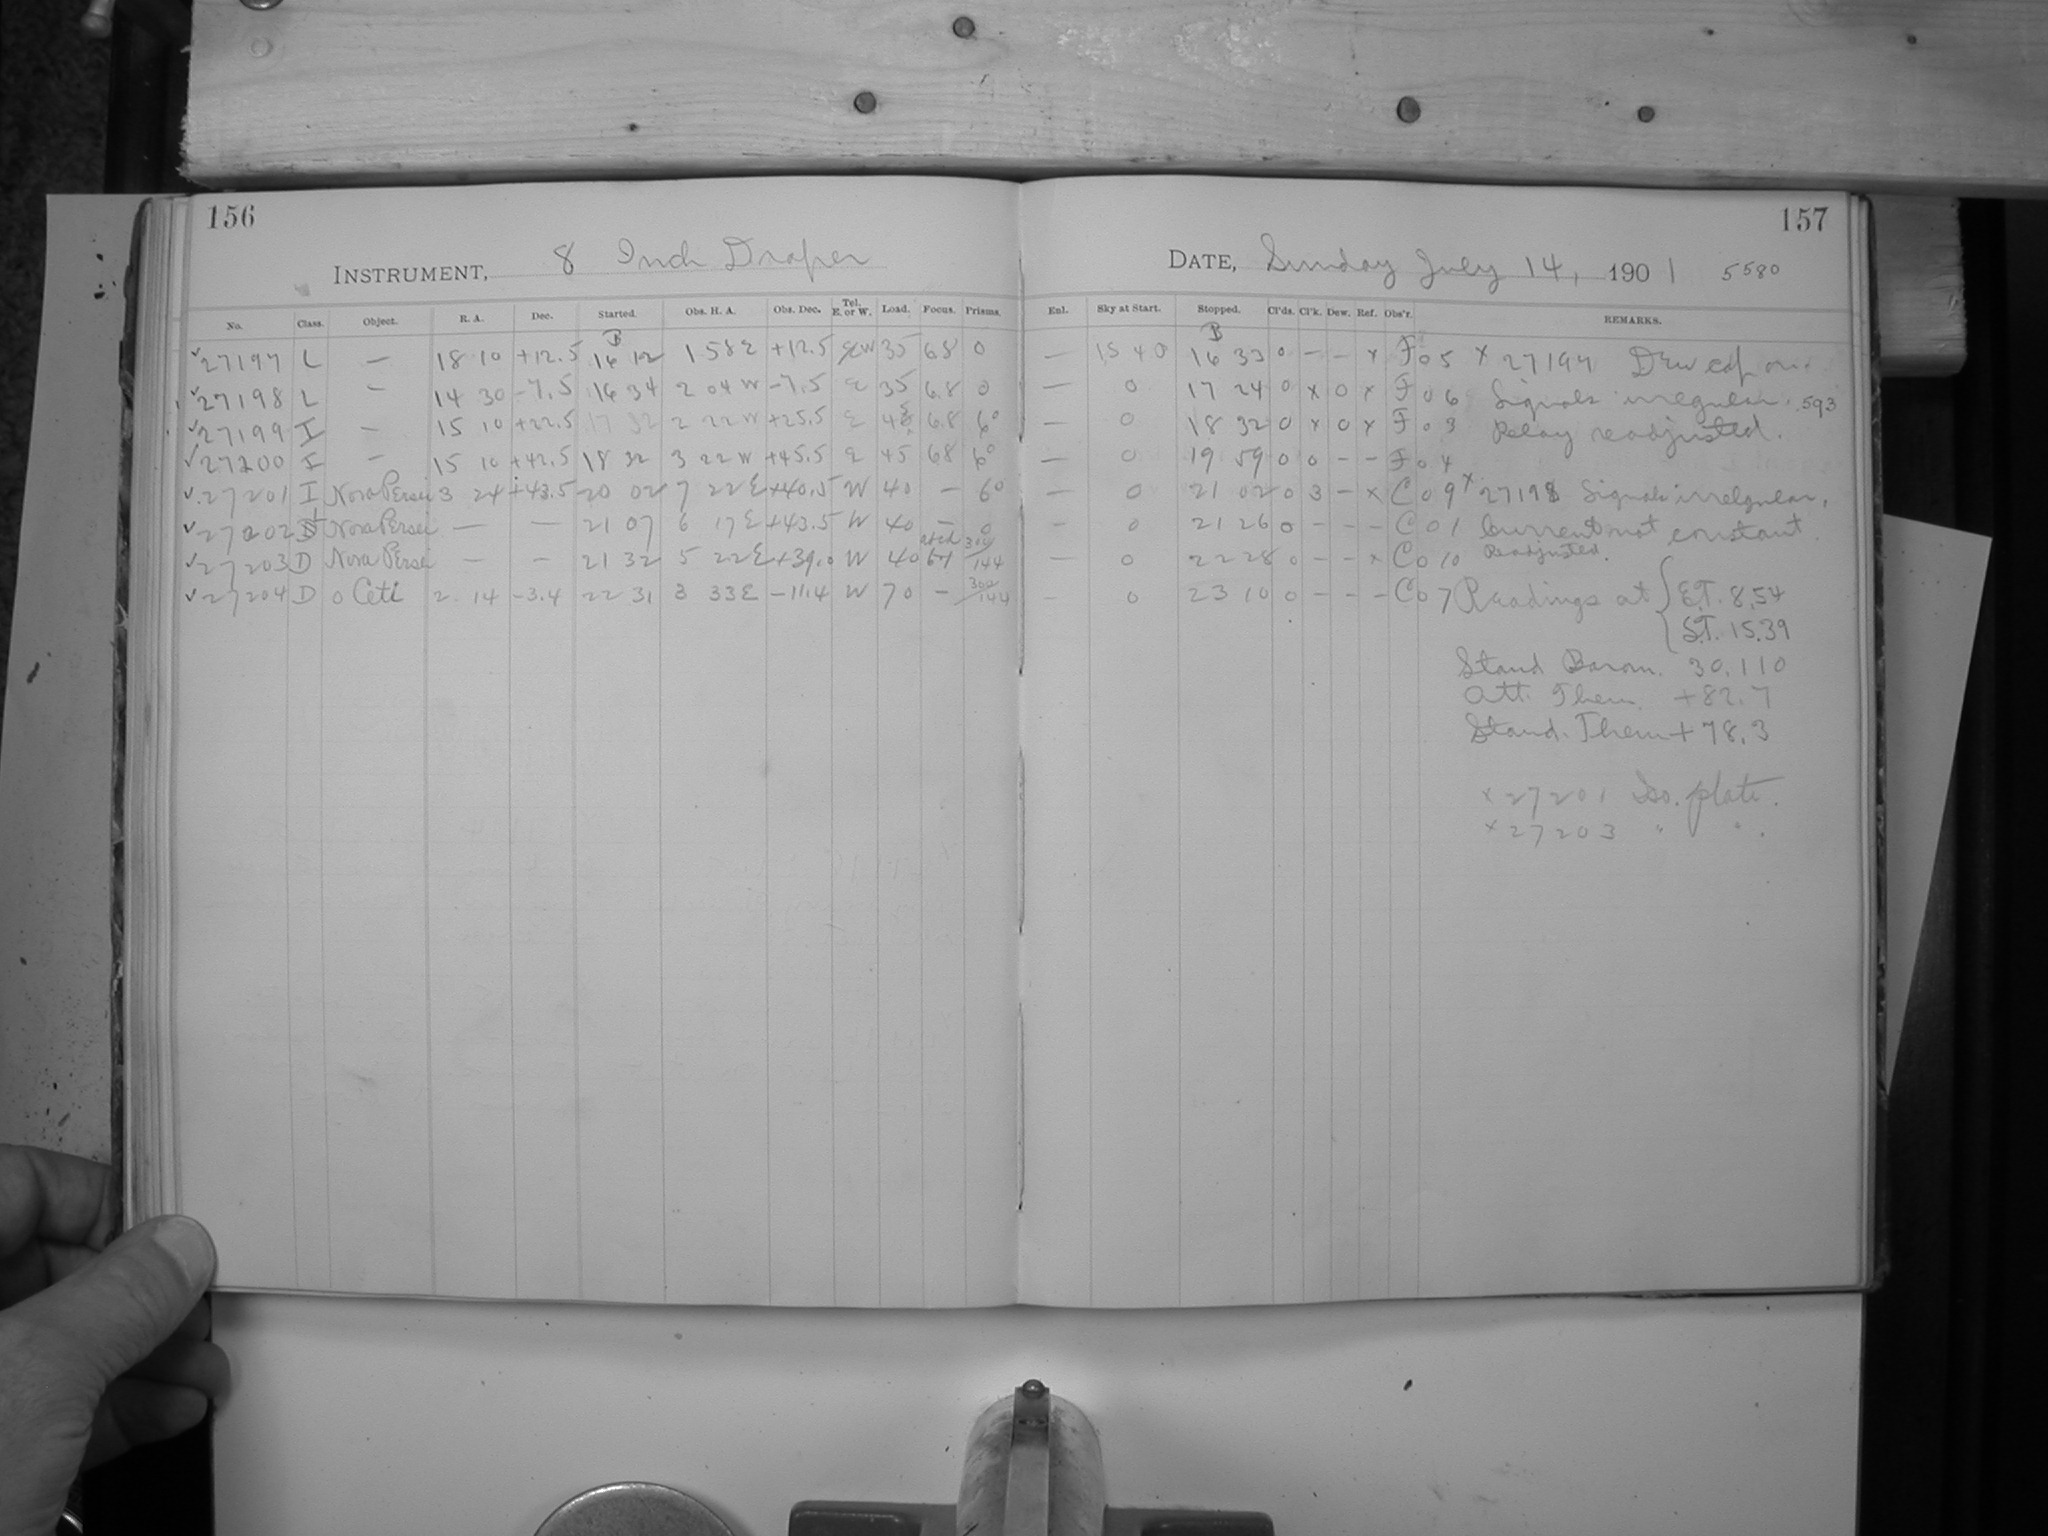 156
INSTRUMENT, 8 Inch Draper
No. Class. Object. R. A. Dec. Started. Obs. H. A. Obs. Dec. Tel. E. or W. Load. Focus. Prisms.
B
27197 L — 18 10 +12.5 16 12 1 58 E +12.5 W 35 68 0
27198 L — 14 30 -7.5 16 34 2 04 W -7.5 E 35 68 0
27199 I — 15 10 +22.5 17 32 2 22 W +25.5 E 45 68 6°
27200 I — 15 10 +42.5 18 32 3 22 W +45.5 E 45 68 6°
27201 I Nova Persei 3 24 +43.5 20 02 7 22 E +40.5 W 40 — 6°
27202 Nova Persei — — 21 07 6 17 E +43.5 W 40 — 0
27203 D Nova Persei — — 21 32 5 22 E +39.0 W 40 300/144
27204 D o Ceti 2 14 -3.4 22 31 3 33 E -11.4 W 70 — 300/144
157
DATE, Sunday July 14, 1901 5580
Enl. Sky at Start. Stopped. Cl'ds. Cl'k. Dew. Ref. Obs'r. REMARKS.
B
— 15 40 16 33 0 — — x F 05 x 27197 Dew cap on.
— 0 17 24 0 x 0 x F 06 Signals irregular. 593
— 0 18 32 0 x 0 x F 03 Relay readjusted.
— 0 19 59 0 0 - - F 04
— 0 21 02 0 3 - x C 09 x 27198 Signals irregular,
— 0 21 26 0 - - - C 01 Current not constant.
— 0 22 28 0 - - x C 010 Readjusted.
— 0 23 10 0 - - - C 07 Readings at { E.T. 8.54
S.T. 15.39
Stand Barom. 30.110
Att. Ther. +82.7
Stand. Ther. +78.3
x 27201 Iso. plate.
x 27203 " " .